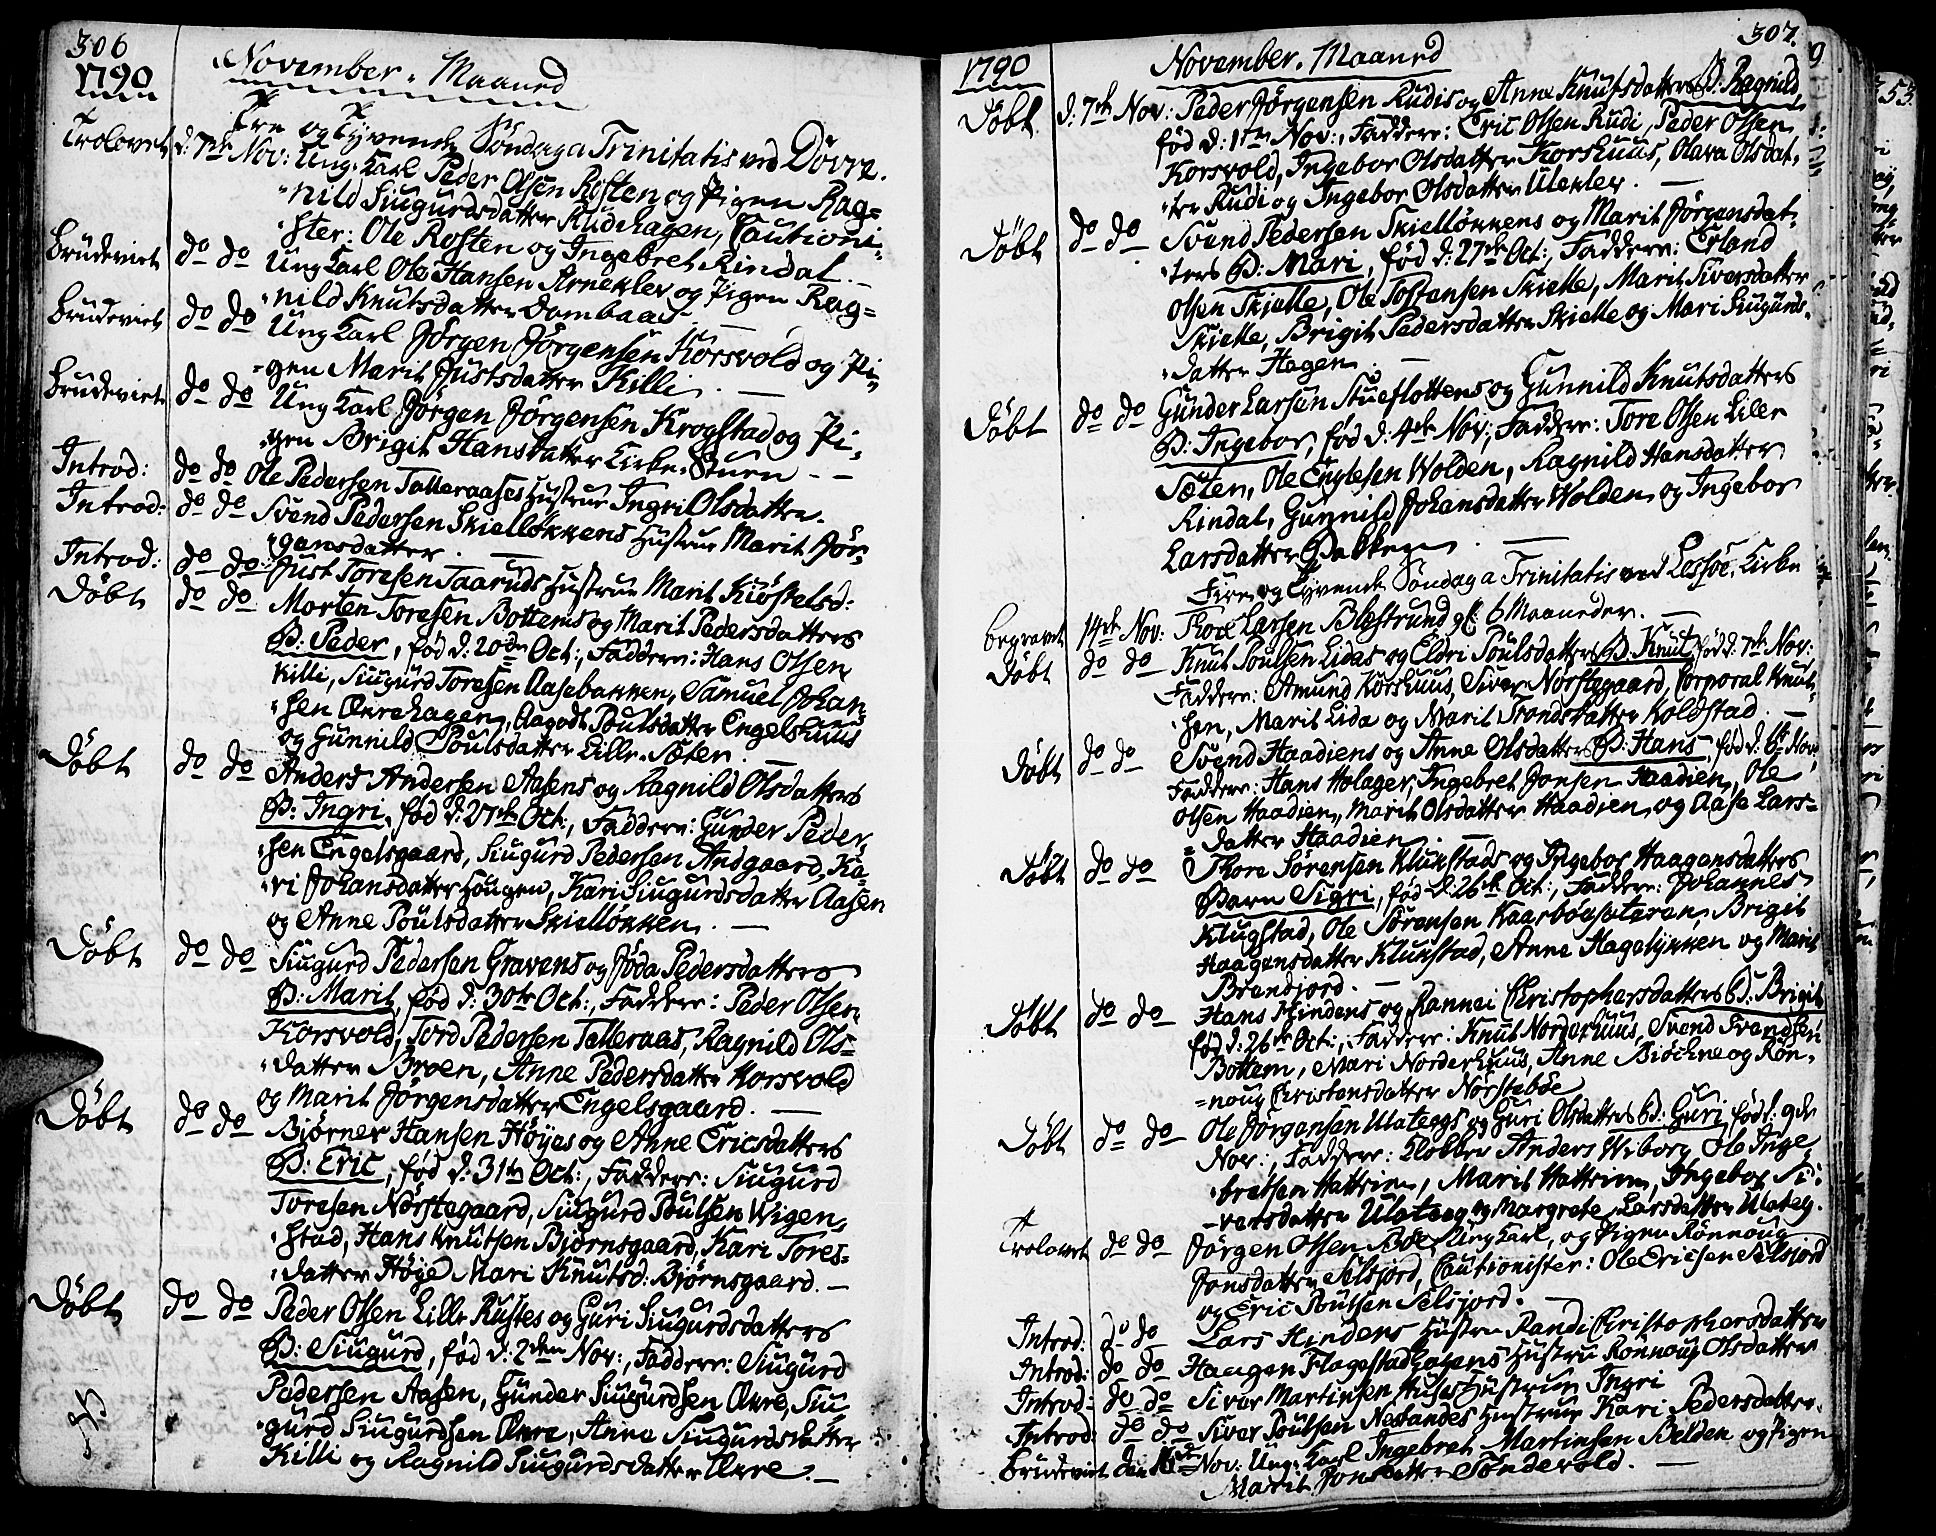 306
1790
November. Maaned
Tre og Tyvende Söndag a Trinitatis ved Dövre.
Trolovet d: 7de Nov: Ung Karl Peder Olsen Rosten og Pigen Rag=
nild Siugurdsdatter Rudihagen, Cautioni=
ster: Ole Rosten og Ingebret Rindal.
Brudeviet do do Ung Karl Ole Hansen Arneklev og Pigen Rag=
nild Knutsdatter Dombaas
Brudeviet do do Ung Karl Jörgen Jörgensen Korsvold og Pi=
gen Marit Justsdatter Killi.
Brudeviet do do Ung Karl Jörgen Jörgensen Krogstad og Pi=
gen Brigit Hansdatter Kirke-Stuen
Introd: do do Ole Pedersen Talleraases Hustrue Ingri Olsdatter.
Introd: do do Svend Pedersen Skiellökkens Hustrue Marit Jör=
gensdatter.
Introd: do do Just Toresen Taaruds Hustrue Marit Kiöstelsd:
Döbt do do Morten Toresen Bottems og Marit Pedersdatters
B: Peder, föd d: 20de Oct:, Faddere: Hans Olsen
Killi, Siugurd Toresen Aasebakken, Samuel Johan=
sen Ökrehagen, Aagodt Poulsdatter Engelshuus
og Gunnild Poulsdatter Lille-Sæter.
Döbt do do Anders Andersen Aasens og Ragnild Olsdatters
B: Ingri, föd d: 27de Oct:, Faddere: Gunder Peder=
sen Engelsgaard, Siugurd Pedersen Andgaard, Ka=
ri Johansdatter Hougen, Kari Siugurdsdatter Aasen
og Anne Poulsdatter Skiellökken.
Döbt do do Siugurd Pedersen Gravens og Jöda Pedersdatters
B: Marit, föd d: 30te Oct:, Faddere: Peder Olsen
Korsvold, Tord Pedersen Talleraas, Ragnild Ols=
datter Broen, Anne Pedersdatter Korsvold
og Marit Jörgensdatter Engelsgaard.
Döbt do do Biörner Hansen Höyes og Anne Ericsdatters
B: Eric, föd d: 31te Oct:, Faddere: Siugurd
Toresen Nörstegaard, Siugurd Poulsen Wigen=
stad, Hans Knutsen Biörnsgaard, Kari Tores=
datter Höye Mari Knutsd: Biörnsgaard.
Döbt do do Peder Olsen Lille Rustes og Guri Siugurdsdatters
B: Siugurd, föd d: 2den Nov:, Faddere: Siugurd
Pedersen Aasen, Gunder Siugurdsen Ökre, Siu=
gurd Siugurdsen Ökre, Anne Siugurdsdatter
Killi og Ragnild Siugurdsdatter Ökre.
307.
1790
November. Maaned
Döbt d: 7de Nov: Peder Jörgensen Rudis og Anne Knutsdatters B: Ragnild,
föd d: 1ste Nov:, Faddere: Eric Olsen Rudi, Peder Olsen
Korsvold, Ingebor Olsdatter Korshuus, Olava Olsdat=
ter Rudi og Ingebor Olsdatter Uleklev.
Döbt do do Svend Pedersen Skiellökkens og Marit Jörgensdat=
ters B: Mari, föd d: 27de Oct:, Faddere: Erland
Olsen Skielle, Ole Tostensen Skielle, Marit Siversdatter
Skielle, Brigit Pedersdatter Skielle og Mari Siugurds=
datter Hagen.
Döbt do do Gunder Larsen Stueflottens og Gunnild Knutsdatters
B: Ingebor, föd d: 4de Nov:, Faddere: Tore Olsen Lille
Sæter, Ole Englesen Wolden, Ragnild Hansdatter
Rindal, Gunnild Johansdatter Wolden og Ingebor
Larsdatter Bakken.
Fire og Tyvende Söndag a Trinitatis ved Lessöe Kirke
Begravet 14de Nov: Thore Larsen Blæstrund gl: 6 Maaneder.
Döbt do do Knut Poulsen Lidas og Eldri Poulsdatters B: Knut, föd d: 7de Nov:
Faddere: Amund Korshuus, Siver Norstegaard, Corporal Knut=
sen, Marit Lida og Marit Svendsdatter Koldstad.
Döbt do do Svend Haadiens og Anne Olsdatters B: Hans, föd d: 6te Nov:
Faddere: Hans Holager, Ingebret Jonsen Haadien, Ole
Olsen Haadien, Marit Olsdatter Haadien og Aase Lars=
datter Haadien.
Döbt do do Thore Sörensen Klukstads og Ingebor Haagensdatters
Barn Sigri, föd d: 26de Oct:, Faddere: Johannes
Klugstad, Ole Sörensen Kaarböesæteren, Brigit
Haagensdatter Klukstad, Anne Hagelykken og Marit
Brendjord.
Döbt do do Hans Hindens og Rannei Christophersdatters B: Brigit
föd d: 26de Oct:, Faddere: Knut Norderhuus, Svend Svendsen
Bottem, Mari Norderhuus, Anne Biöckne og Rön=
noug Christensdatter Norsteböe
Döbt do do Ole Jörgensen Ulateigs og Guri Olsdatters B: Guri föd d: 9de
Nov:, Faddere: Klokker Anders Wiborg, Ole Inge=
bretsen Hattrim, Marit Hattrim, Ingebor Si=
versdatter Ulateig og Margrete Larsdatter Ulateig.
Trolovet do do Jörgen Olsen Böe, Ung Karl, og Pigen Rönnoug
Jonsdatter Selsjord, Cautionister: Ole Ericsen Selsjord
og Eric Poulsen Selsjord.
Introd: do do Lars Hindens Hustru Randi Christophersdatter
Introd: do do Haagen Flagestadhagens Hustru Rönnoug Olsdatter
Introd: do do Siver Martinsen Huses Hustrue Ingri
Introd: do do Siver Poulsen Nestandes Hustrue Kari Pedersdatter.
Brudeviet den 16de Nov: Ung Karl Ingebret Martinsen Belden og Pigen
Marit Jonsdatter Söndevold.
353